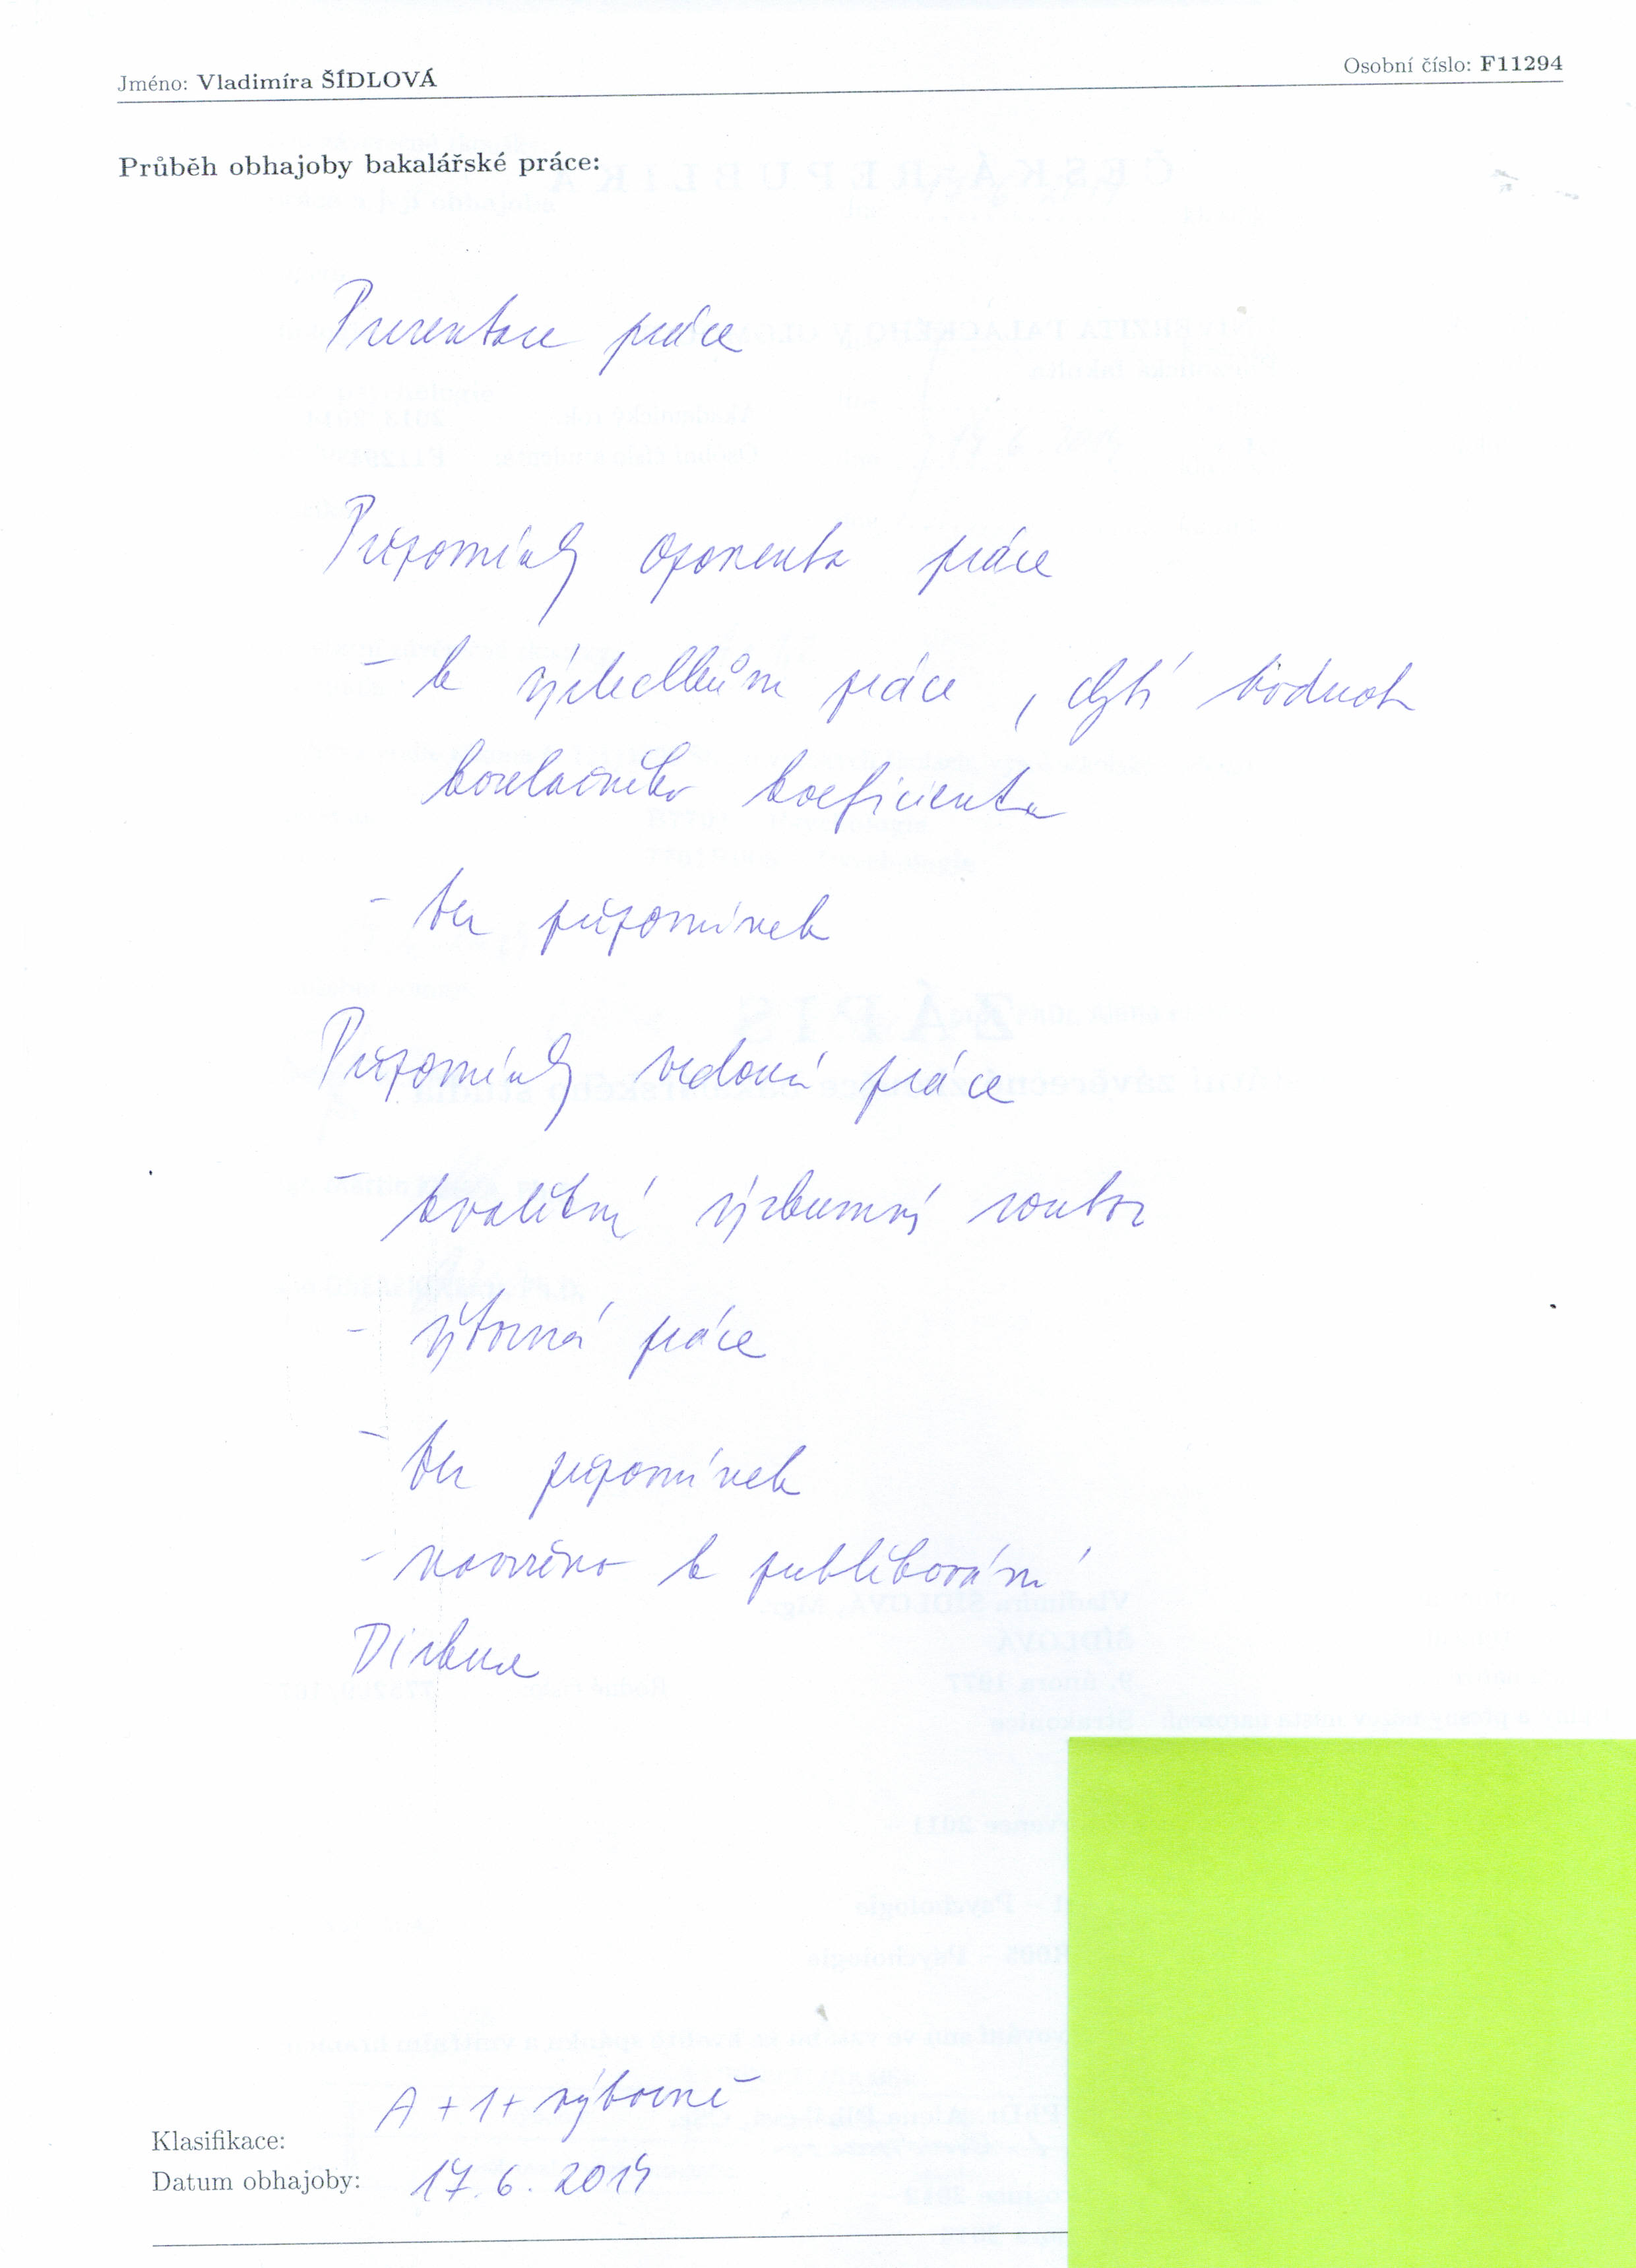 Jméno: Vladimíra ŠÍDLOVÁ
Osobní číslo: F11294
Průběh obhajoby bakalářské práce:
Prezentace práce
Připomínky oponenta práce
- k výsledkům práce, chybí hodnota
korelačního koeficientu
- bez připomínek
Připomínky vedoucí práce
- kvalitní výzkumný soubor
- výborná práce
- bez připomínek
- navrženo k publikování
Diskuse
Klasifikace: A + 1 + výborně
Datum obhajoby: 17. 6. 2014